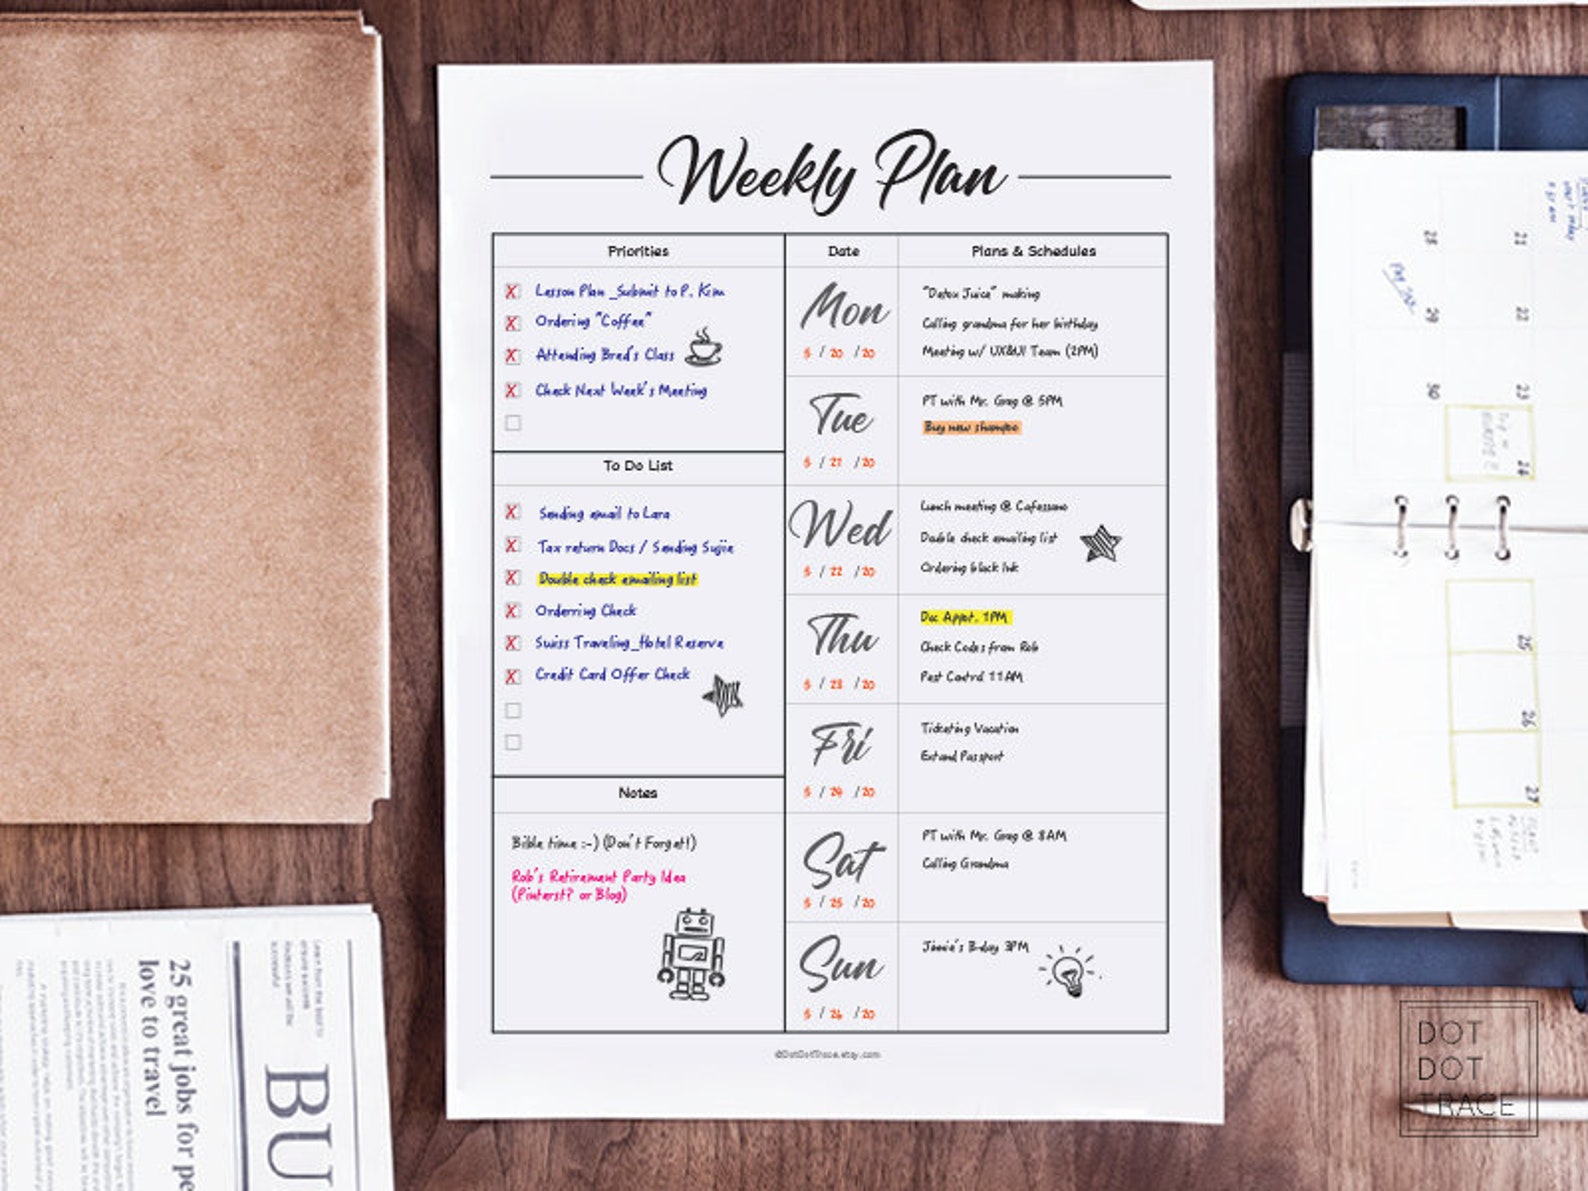 Weekly Plan
Priorities
X Lesson Plan _Submit to P. Kim
X Ordering "Coffee"
X Attending Bred's Class
X Check Next Week's Meeting
To Do List
X Sending email to Lara
X Tax return Docs / Sending Sujie
X Double check emailing list
X Orderring Check
X Swiss Traveling_Hotel Reserve
X Credit Card Offer Check
Notes
Bible time :-) (Don't Forget!)
Rob's Retirement Party Idea
(Pinterst? or Blog)
Date
Plans & Schedules
Mon
5 / 20 / 20
"Detox Juice" making
Calling grandma for her birthday
Meeting w/ UX&UI Team (2PM)
Tue
5 / 21 / 20
PT with Mr. Greg @ 5PM
Buy new shampoo
Wed
5 / 22 / 20
Lunch meeting @ Cafessano
Double check emailing list
Ordering black Ink
Thu
5 / 23 / 20
Doc Appot. 1PM
Check Codes from Rob
Pest Control 11AM
Fri
5 / 24 / 20
Ticketing Vacation
Extand Passport
Sat
5 / 25 / 20
PT with Mr. Greg @ 8AM
Calling Grandma
Sun
5 / 26 / 20
Jamie's B-day 3PM
©DotDotTrace.etsy.com
25 great jobs for pe
love to travel
BU
Learn from the best to
21
22
23
24
28
29
30
25
26
27
DOT
DOT
TRACE